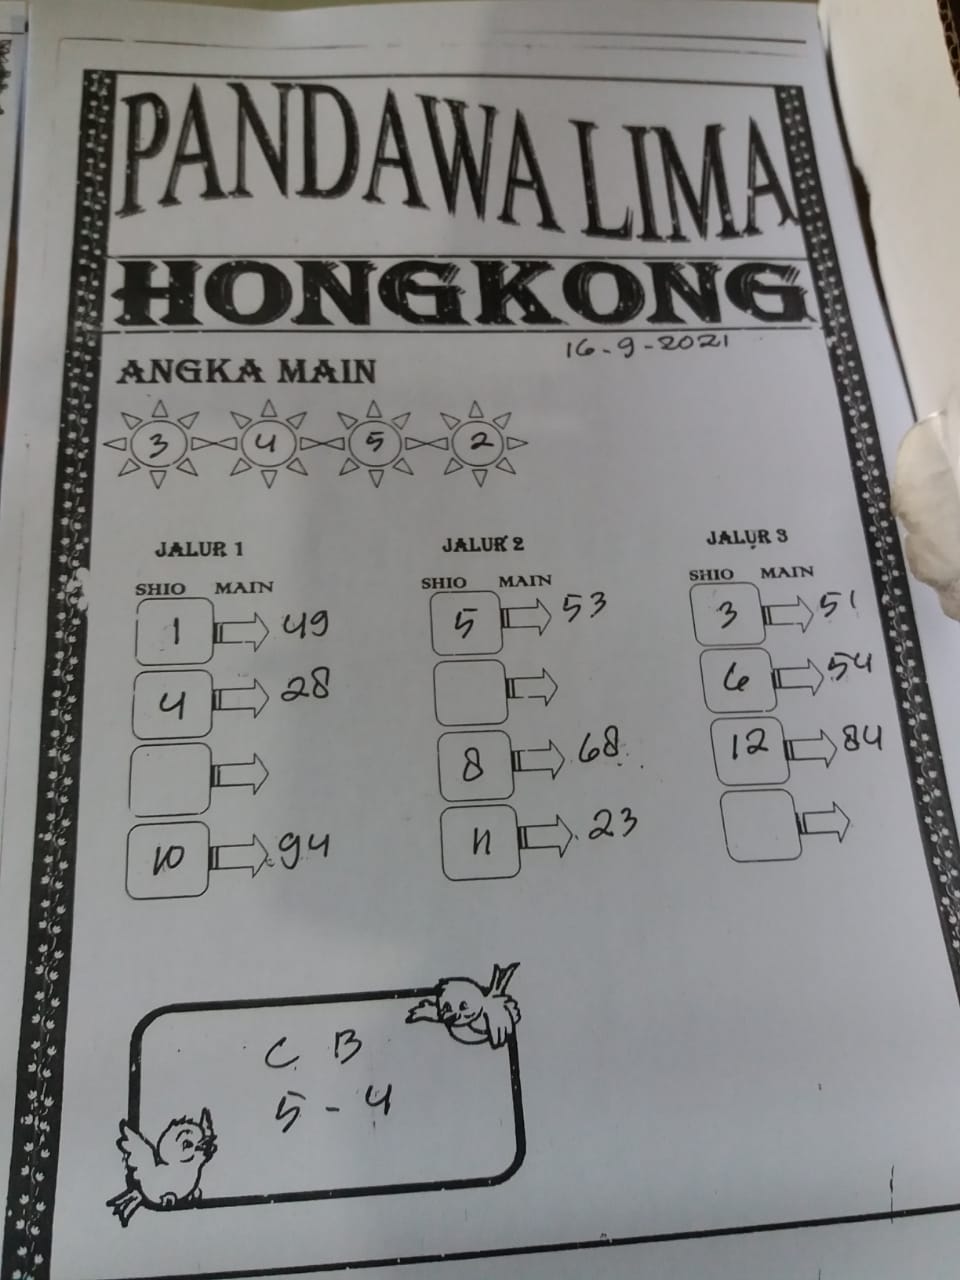 PANDAWA LIMA
HONGKONG
16-9-2021
ANGKA MAIN
3 4 5 2
JALUR 1
SHIO MAIN
1 49
4 28
10 94
JALUR 2
SHIO MAIN
5 53
8 68
11 23
JALUR 3
SHIO MAIN
3 51
6 54
12 84
C B
5 - 4